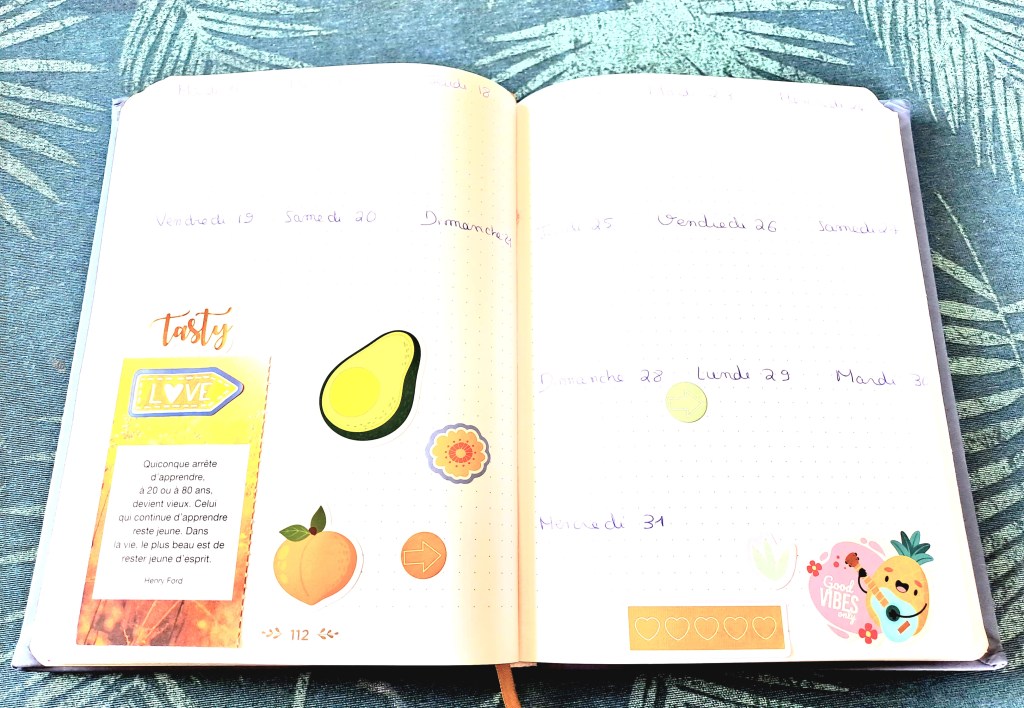 Vendredi 19 Samedi 20 Dimanche 21
tasty
LOVE
Quiconque arrête
d'apprendre,
à 20 ou à 80 ans,
devient vieux. Celui
qui continue d'apprendre
reste jeune. Dans
la vie, le plus beau est de
rester jeune d'esprit.
Henry Ford
112
25 Vendredi 26 Samedi
Dimanche 28 Lundi 29 Mardi 30
Mercredi 31
Good
VIBES
only